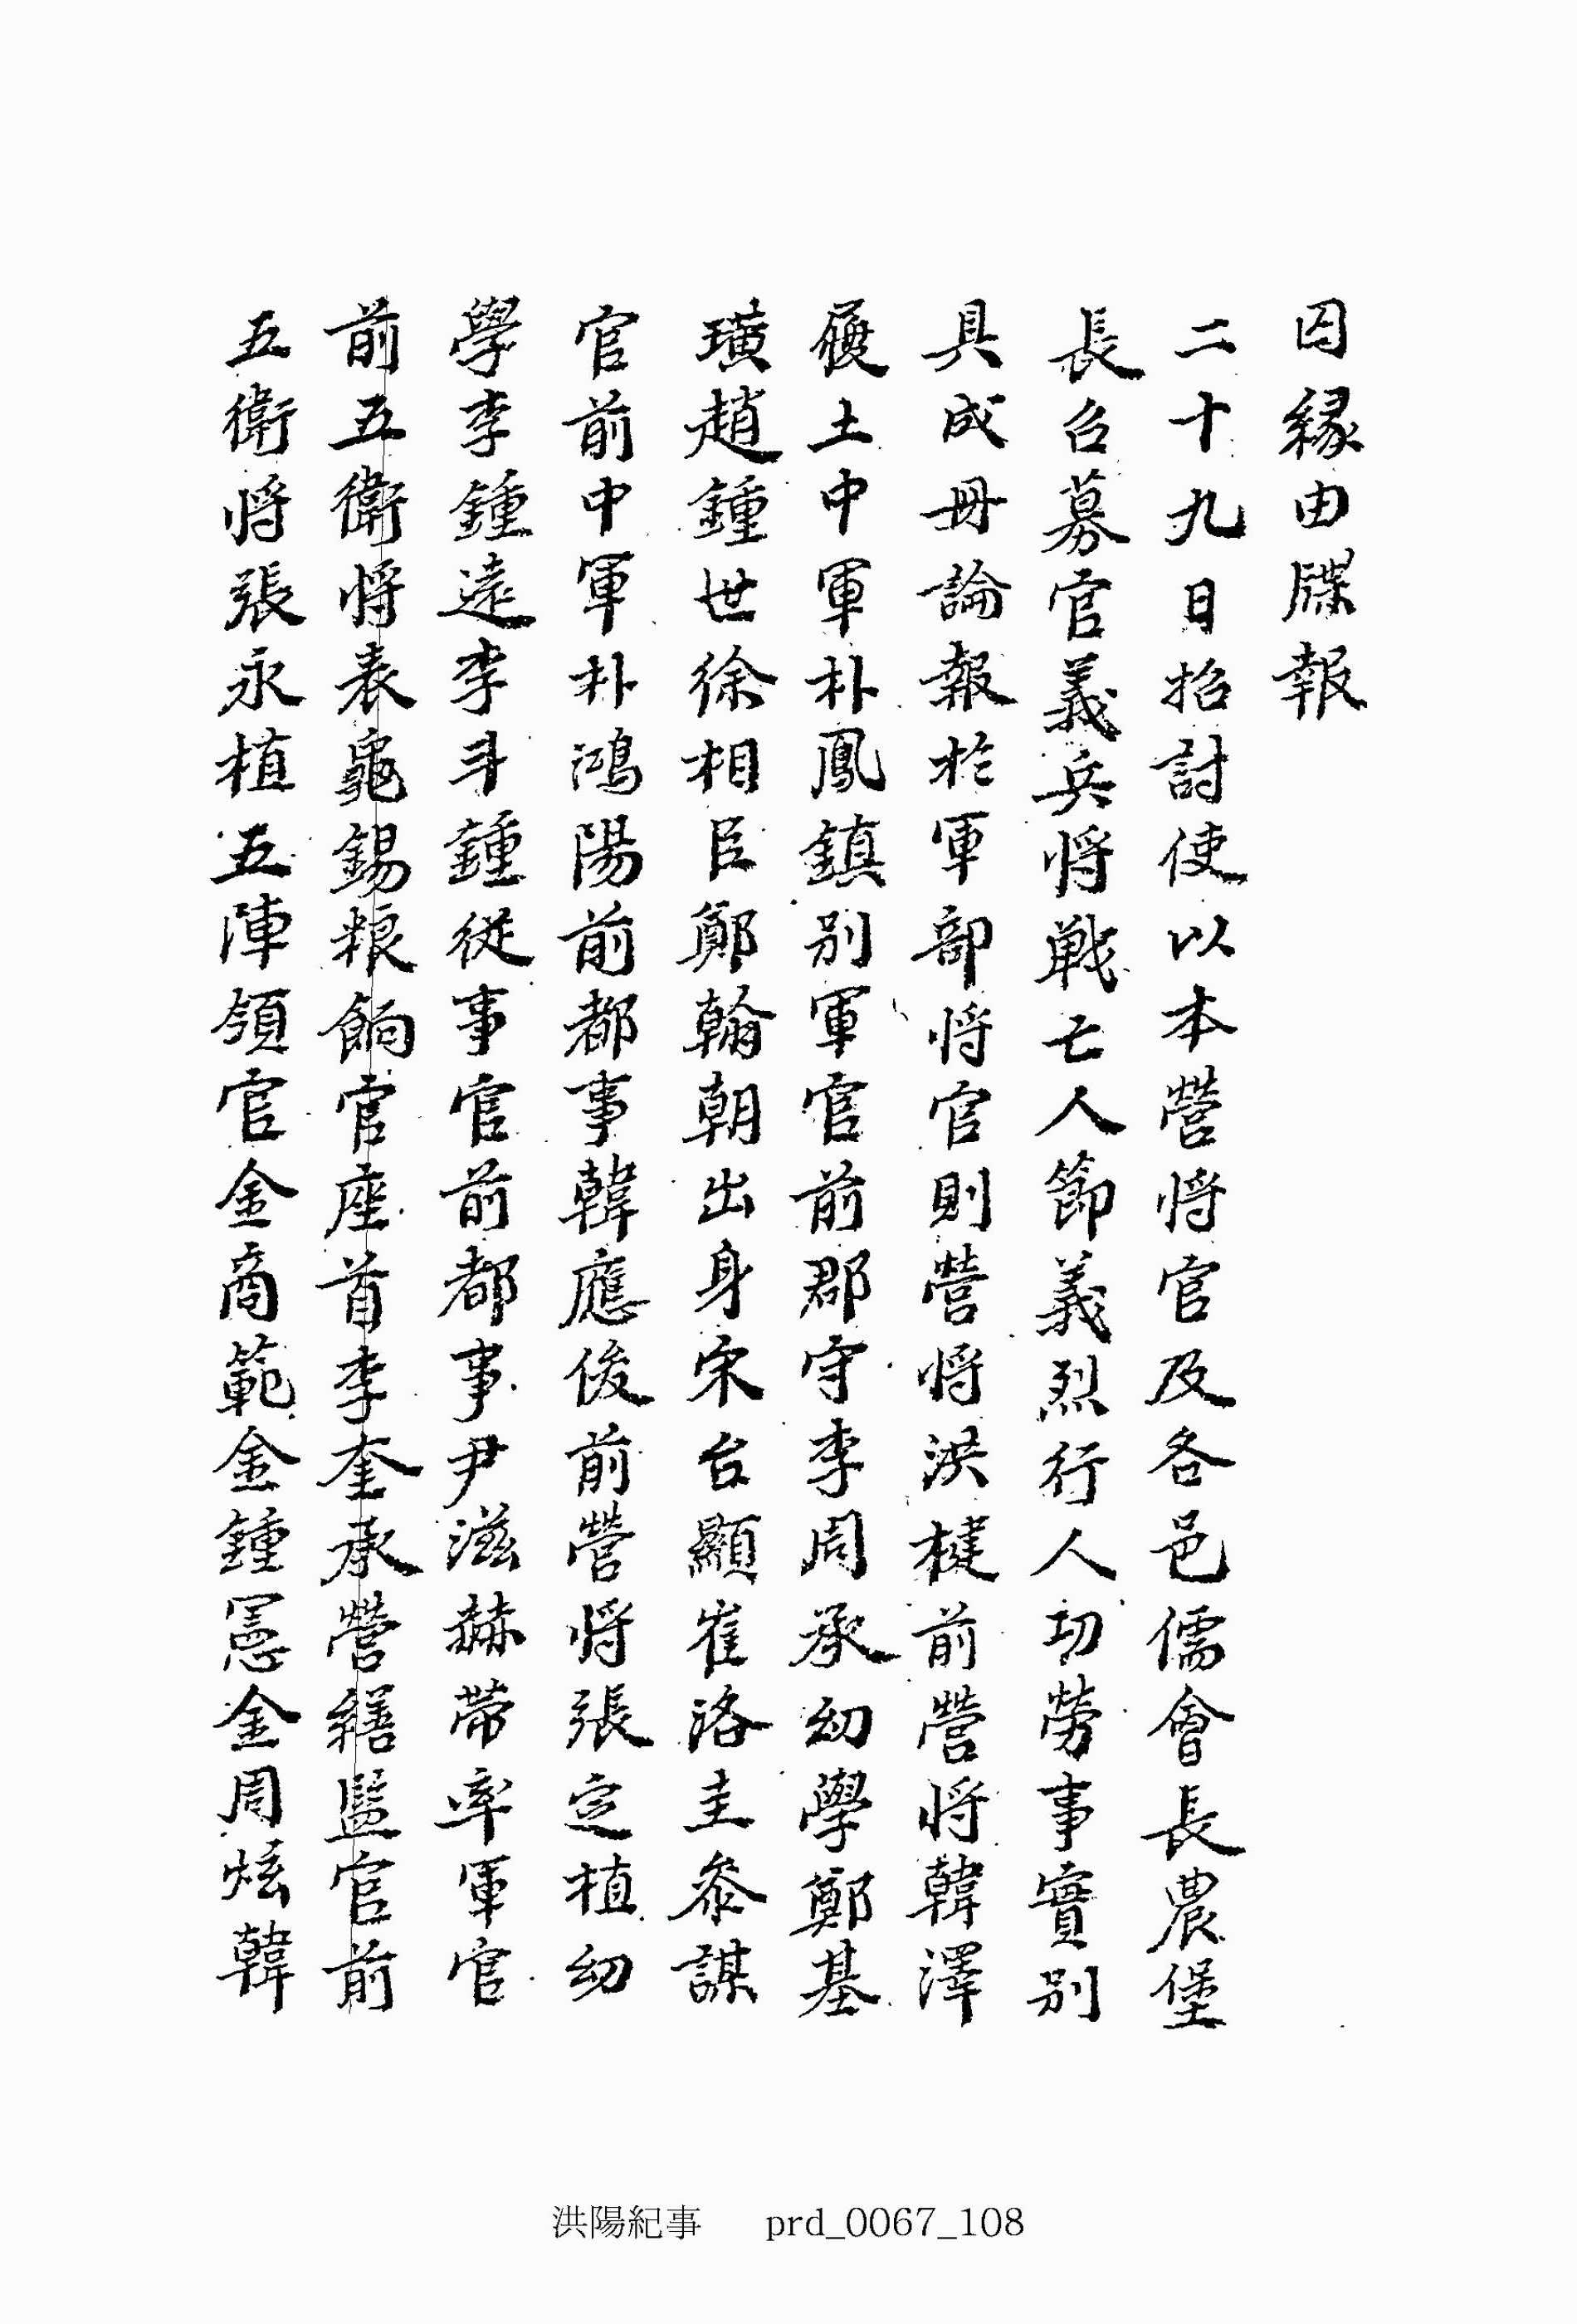 因緣由牒報
二十九日招討使以本營將官及各邑儒會長農堡
長召募官義兵將戰亡人節義烈行人功勞事實別
具成冊論報於軍部將官則營將洪楗前營將韓澤
履土中軍朴鳳鎮別軍官前郡守李周承幼學鄭基
璜趙鍾世徐相臣鄭翰朝出身宋台顯崔洛圭參謀
官前中軍朴鴻陽前都事韓應俊前營將張定植幼
學李鍾遠李斗鍾從事官前都事尹滋赫帶率軍官
前五衛將表龜錫粮餉官座首李奎承營繕監官前
五衛將張永植五陣領官金商範金鍾憲金周炫韓
洪陽紀事 prd_0067_108